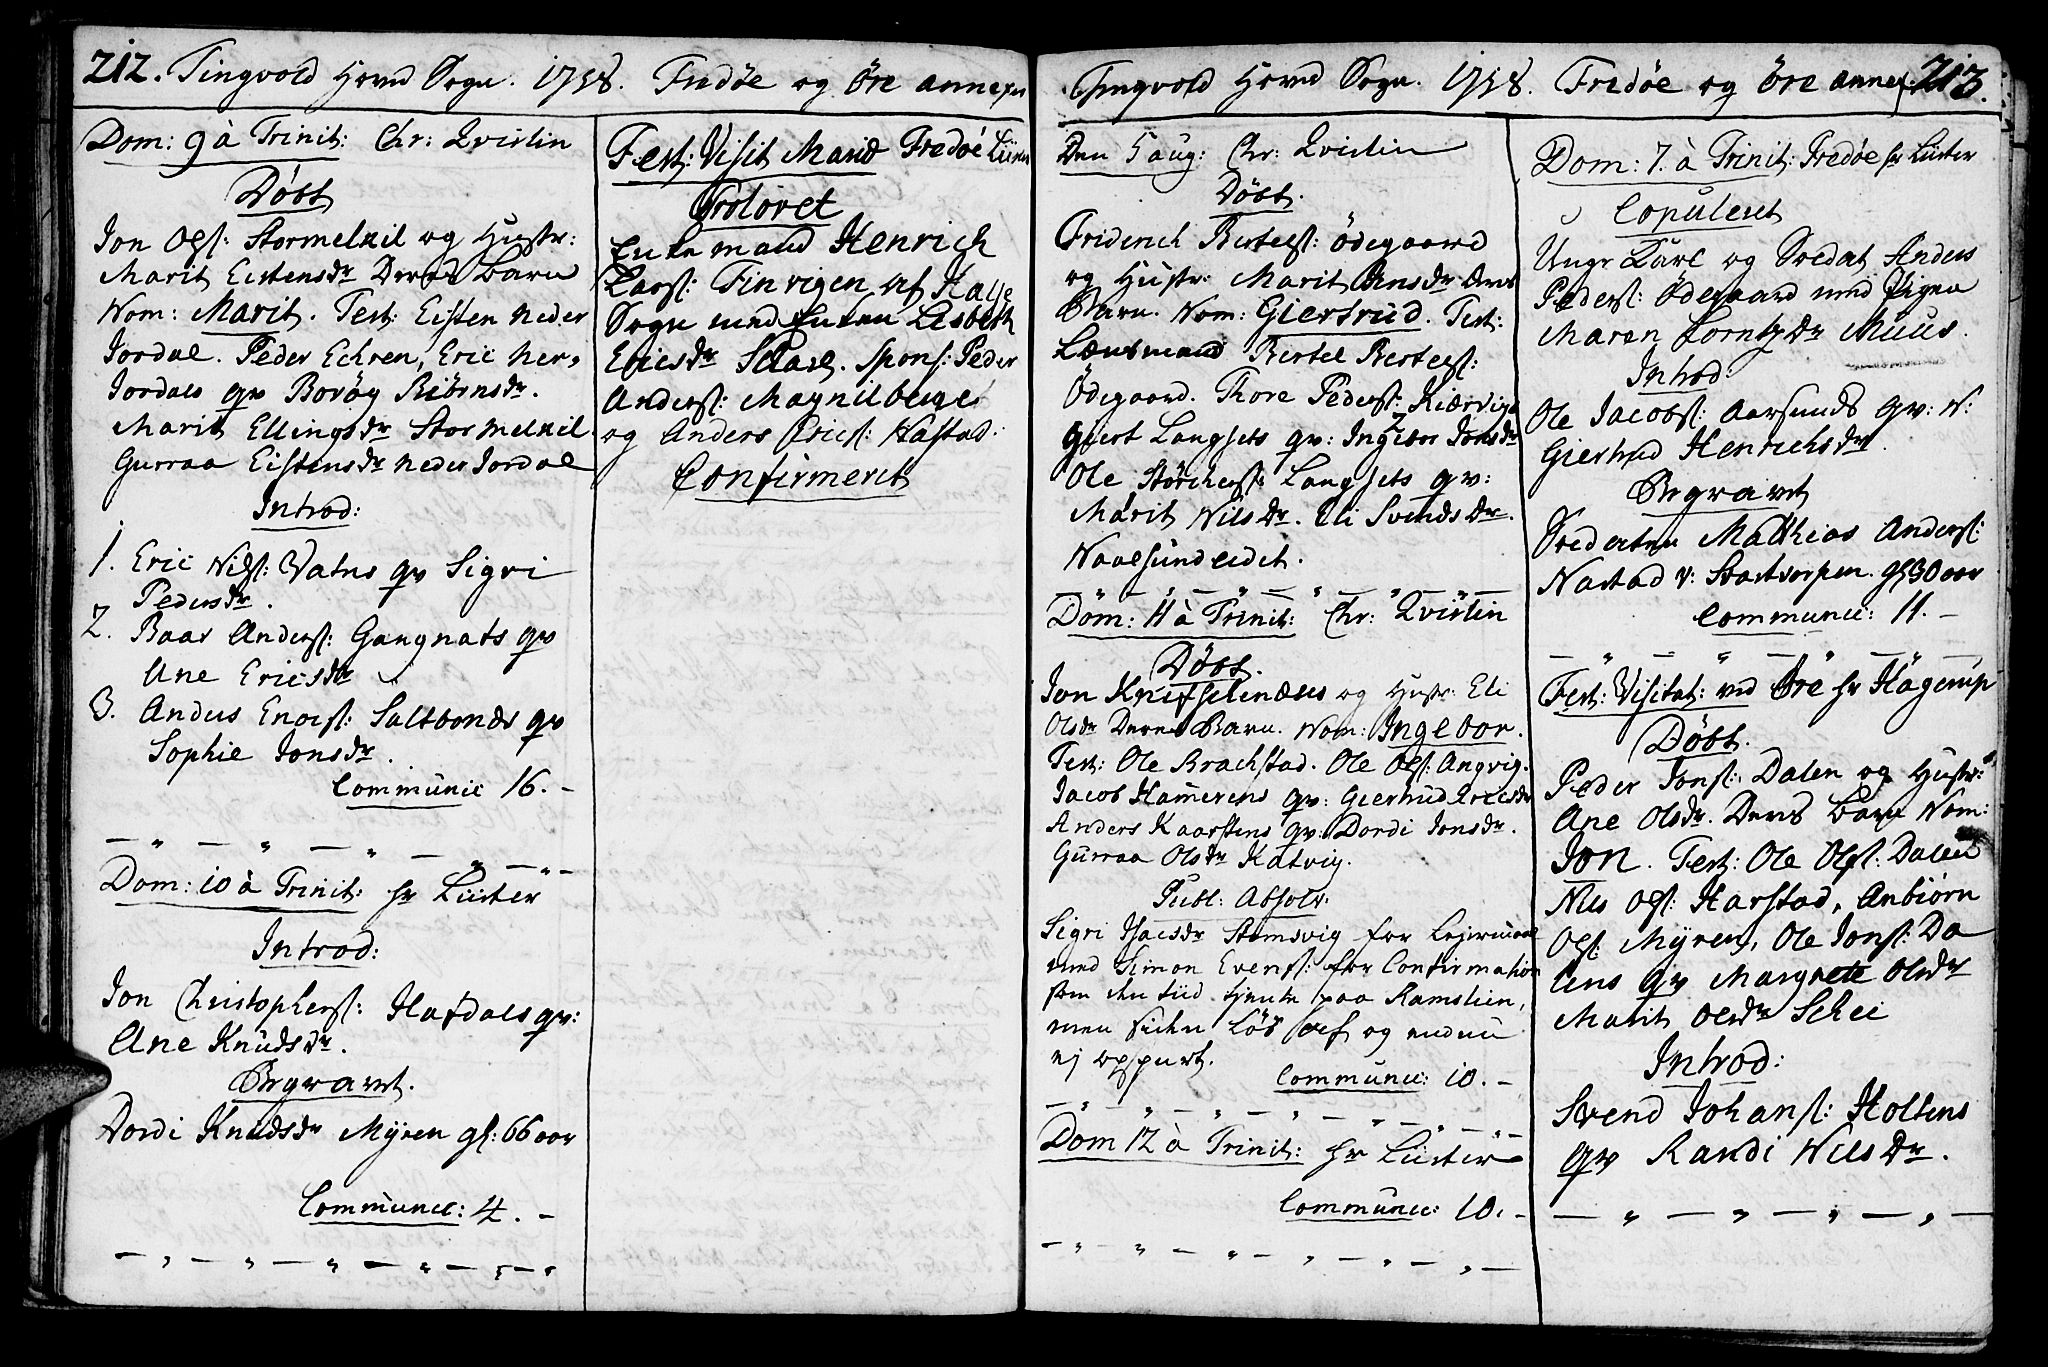 212. Tingvold Hoved Sogn. 1758. Fredøe og Øre annexer
Dom: 9 à Trinit: Chr: Qvistin
Döbt
Jon Ols: Stormelkil og Hustr:
Marit Eistensdr Deres Barn
Nom: Marit. Test: Eisten Neder
Jordal. Peder Echren, Eric Ner,
Jordals qv Boröy Biörnsdr.
Marit Ellingsdr Stormelkil
Gurraa Eistensdr Neder Jordal
Introd:
1. Eric Nils: Vatns qv Sigri
Pedersdr.
2. Baar Anders: Gangnats qv
Ane Ericsdr
3. Anders Enoes: Saltbonds qv
Sophie Jonsdr.
Communic 16. -
Dom: 10 à Trinit: Hr Lüster
Introd:
Jon Christophers: Hafdals qv:
Ane Knudsdr.
Begravet.
Dordi Knudsdr Mÿren gl: 66 aar
Communic: 4. -
Fest: Visit Mariæ Fredöe
Trolovet
Enkemand Henrich
Lars: Finvigen af Halse
Sogn med Enken Lisbeth
Ericsdr Schare. Spons: Peder
Anders: Magnilberge
og Anders Erics: Hastad.
Confirmerit
Tingvold Hoved Sogn. 1758. Fredøe og Øre annex: 213.
Den 5 aug: Chr: Qvistin
Döbt.
Friderich Bertels: Ödegaard
og Hustr: Marit Jensdr deres
Barn. Nom: Giertrud. Test:
Lænsmand Bertel Bertels:
Ödegaard. Thore Peders: Kiærvig
Giert Langsets qv: Ingebor Jonsdr
Ole Störchers: Langsets qv:
Marit Nilsdr. Eli Svendsdr.
Naalsundeidet.
Dom: 11 à Trinit: Chr: Qvistin
Döbt.
Jon Knefselenæs og Hustr: Eli
Olsdr Deres Barn. Nom: Ingebor.
Test: Ole Brachstad. Ole Ols: Angvig.
Jacob Hamerens qv: Giertrud Ericsdr
Anders Kaarstens qv: Dordi Jonsdr.
Gurraa Olsdr Katvig.
Publ: Absolv:
Sigri Isacsdr Stomsvig for Lejermaal
med Simon Evens: for Confirmation
som den tiid tjente paa Ramslien,
men siden Löb af og endnu
ej oppurt.
Communic: 10. -
Dom 12 à Trinit: Hr Lüster
Communic: 10. -
Dom: 7. à Trinit: Fredöe Hr Lüster
Copuleret
Unge Karl og Soldat Anders
Peders: Ödegaard med Pigen
Maren Lorntzdr Muus.
Introd:
Ole Jacobs: Aarsunds qv: N:
Giertrud Henrichsdr.
Begravet
Soldaten Mathias Anders:
Nastad v: Stortsorpen. gl 30 aar
Communic: 11. -
Fest: Visitat: ved Öre Hr Hagerup
Döbt.
Peder Jons: Dalen og Hustr:
Ane Olsdr. Deres Barn Nom:
Jon. Test: Ole Ols: Dalen
Nils Ols: Harstad, Anbiörn
Ols: Mÿren, Ole Jons: Da
lens qv Margrete Olsdr
Marit Olsdr Schei
Introd:
Svend Johans: Holtens
qv Randi Nilsdr.